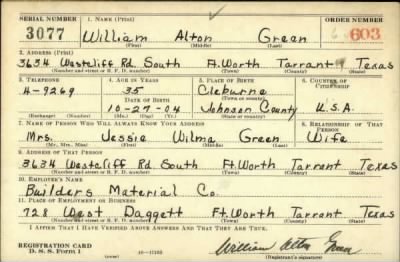 SERIAL NUMBER 1. NAME (Print) ORDER NUMBER
3077 William Alton Green 603
(First) (Middle) (Last)
2. ADDRESS (Print)
3634 Westcliff Rd. South Ft. Worth Tarrant Texas
(Number and street or R. F. D. number) (Town) (County) (State)
3. TELEPHONE 4. AGE IN YEARS 5. PLACE OF BIRTH 6. COUNTRY OF CITIZENSHIP
4-9269 35 Cleburne
DATE OF BIRTH (Town or county)
10-27-04 Johnson County U.S.A.
(Exchange) (Number) (Mo.) (Day) (Yr.) (State or country)
7. NAME OF PERSON WHO WILL ALWAYS KNOW YOUR ADDRESS 8. RELATIONSHIP OF THAT PERSON
Mrs. Jessie Wilma Green Wife
(Mr., Mrs., Miss) (First) (Middle) (Last)
9. ADDRESS OF THAT PERSON
3634 Westcliff Rd. South Ft. Worth Tarrant Texas
(Number and street or R. F. D. number) (Town) (County) (State)
10. EMPLOYER'S NAME
Builders Material Co.
11. PLACE OF EMPLOYMENT OR BUSINESS
728 West Daggett Ft. Worth Tarrant Texas
(Number and street or R. F. D. number) (Town) (County) (State)
I AFFIRM THAT I HAVE VERIFIED ABOVE ANSWERS AND THAT THEY ARE TRUE.
REGISTRATION CARD
D. S. S. Form 1 William Alton Green
(Registrant's signature)